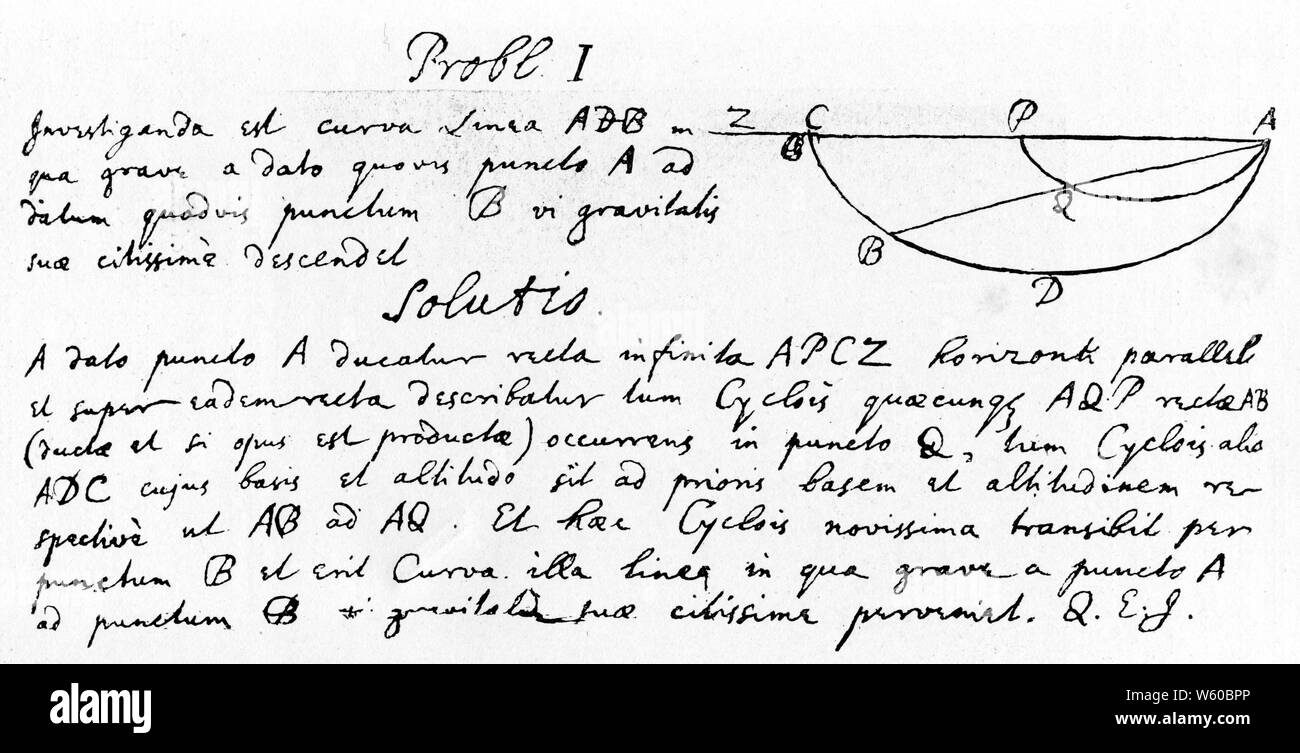 Probl. I
Investiganda est curva Linea ADB in
qua grave a dato quovis puncto A ad
datum quodvis punctum B vi gravitatis
suæ citissimè descendet
Z C P A
Q
B
D
Solutio.
A dato puncto A ducatur recta infinita APCZ horizonti parallela
et super eadem recta describatur tum Cyclois quæcunqꝫ AQP rectæ AB
(ductæ et si opus est productæ) occurrens in puncto Q, tum Cyclois alia
ADC cujus basis et altitudo sit ad prioris basem et altitudinem re-
spectivè ut AB ad AQ. Et hæc Cyclois novissima transibit per
punctum B et erit Curva illa linea in qua grave a puncto A
ad punctum B vi gravitatis suæ citissime perveniet. Q.E.J.
alamy
Image ID: W60BPP
www.alamy.com